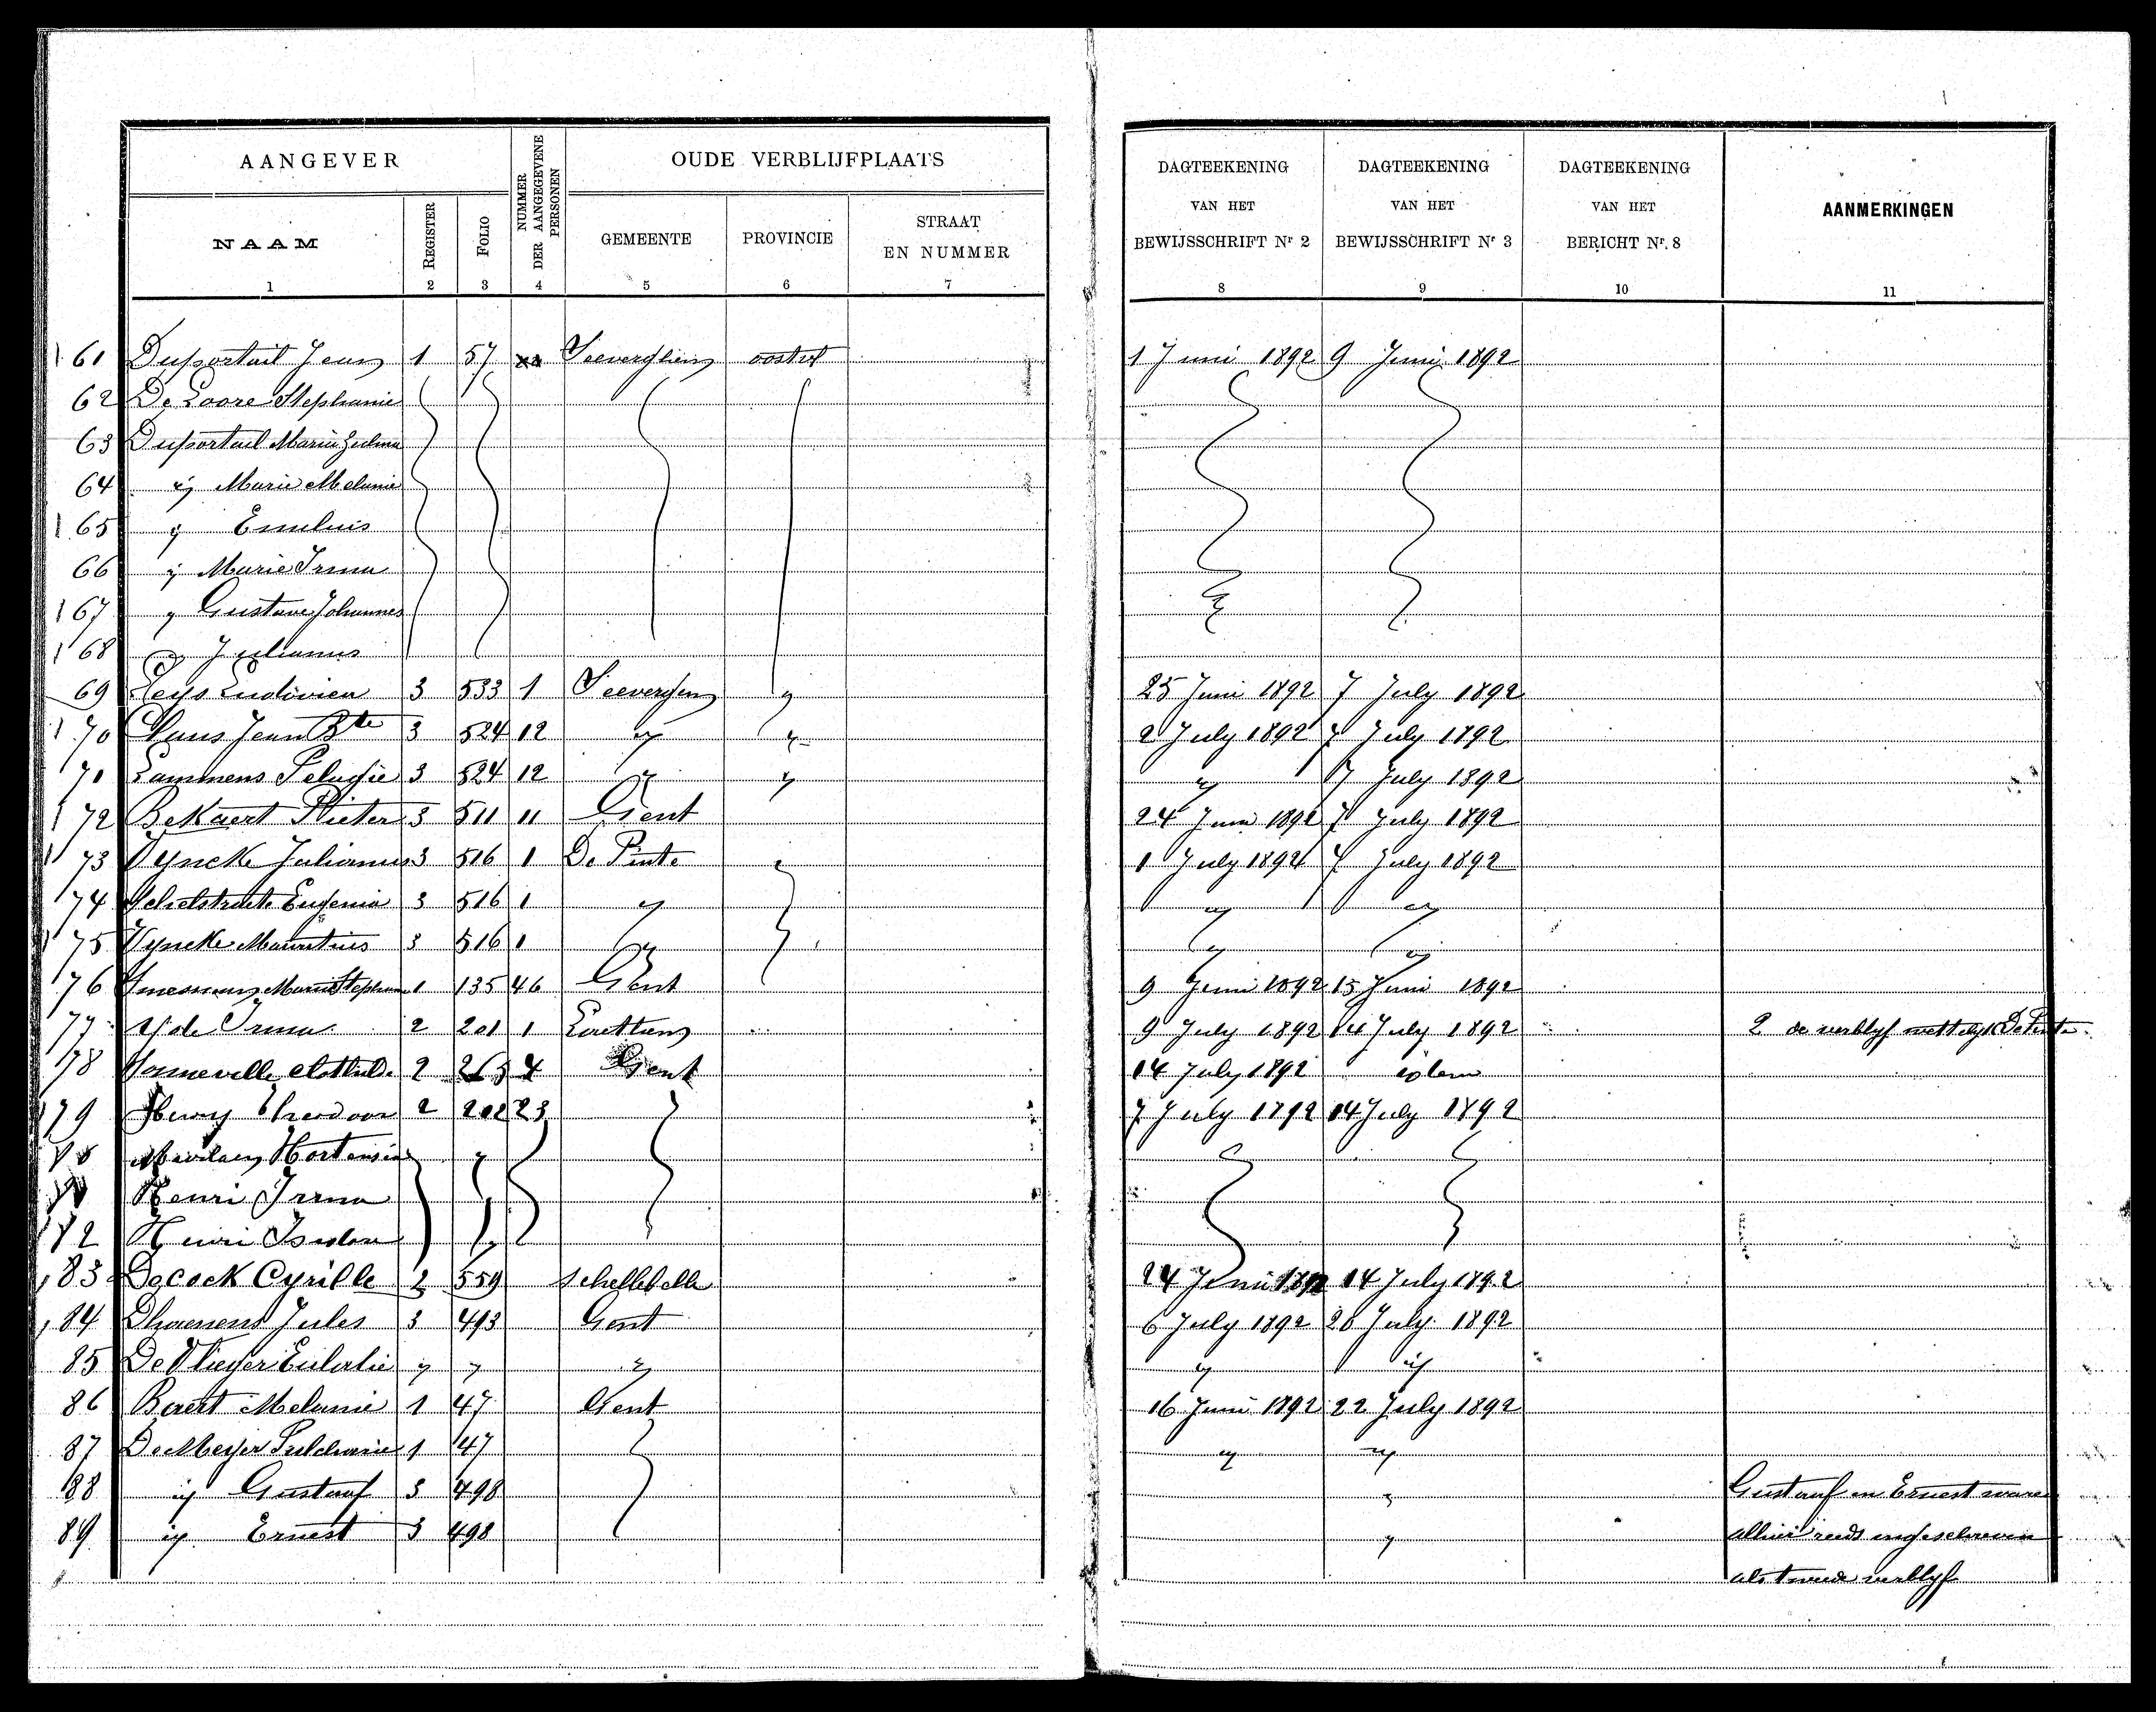 AANGEVER
NUMMER DER AANGEGEVENE PERSONEN
OUDE VERBLIJFPLAATS
DAGTEEKENING VAN HET BEWIJSSCHRIFT Nr 2
DAGTEEKENING VAN HET BEWIJSSCHRIFT Nr 3
DAGTEEKENING VAN HET BERICHT Nr. 8
AANMERKINGEN
NAAM REGISTER FOLIO GEMEENTE PROVINCIE STRAAT EN NUMMER
1 2 3 4 5 6 7 8 9 10 11
61 Duportail Jean 1 57 Seeverghem oostvl 1 Juni 1892 9 Juni 1892
62 De Loore Stephanie
63 Duportail Maria Zulma
64 id Marie Melanie
65 id
66 id Marie Irma
67 id Gustave Johannes
68 Julianus
69 Leys Ludovica 3 533 1 Seeverghem id 25 Juni 1892 7 July 1892
70 Claus Jean Bte 3 524 12 id id 2 July 1892 7 July 1892
71 Lammens Pelagie 3 524 12 id id id 7 July 1892
72 BeKaert Pieter 3 511 11 Gent 24 Juni 1892 7 July 1892
73 VynckE Julianus 3 516 1 De Pinte 1 July 1892 7 July 1892
74 Schelstraete Eugenia 3 516 1 id id id
75 Vyncke Mauritius 3 516 1 id id id
76 Marie 1 135 46 Gent 9 Juni 1892 15 Juni 1892
77 Irma 2 201 1 9 July 1892 14 July 1892 2 de verblyf De Pinte
78 Clothilde 2 4 Gent 14 July 1892 idem
79 Theodoor 2 202 23 7 July 1892 14 July 1892
Hortensia
Henri Irma
82 Henri Isidore
83 Decock Cyrille 2 559 Schellebelle 24 Juni 1892 14 July 1892
84 Dhaenens Jules 3 493 Gent 6 July 1892 20 July 1892
85 De Vlieger Eulalie id id id id id
86 Baert Melanie 1 47 Gent 16 Juni 1892 22 July 1892
87 DeMeyer 1 47 id id
88 id Gustaaf 3 498 id Gustaaf en Ernest waren
89 id Ernest 3 498 id alhier reeds ingeschreven
als tweede verblyf